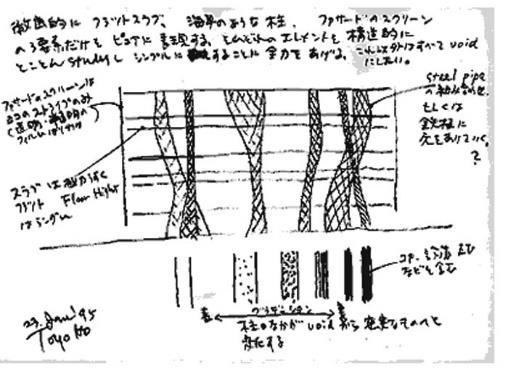 徹底的に フラットスラブ、海草のような 柱、ファサードのスクリーン
の3要素だけを ピュアに 表現する。それぞれの エレメントを 構造的に
とことん studyし シンプルに することに 全力をあげる。これ以外はすべて void
にしたい。
ファサードのスクリーンは
ヨコのストライプのみ
steel pipe
もしくは
鉄板に
穴をあけていく。
?
スラブは極力薄く
フラット Floor Height
はランダム
コア、
などを含む
グラデーション
柱のなかが void から 密実なものへと
変化する
23. Jan' 95
Toyo Ito